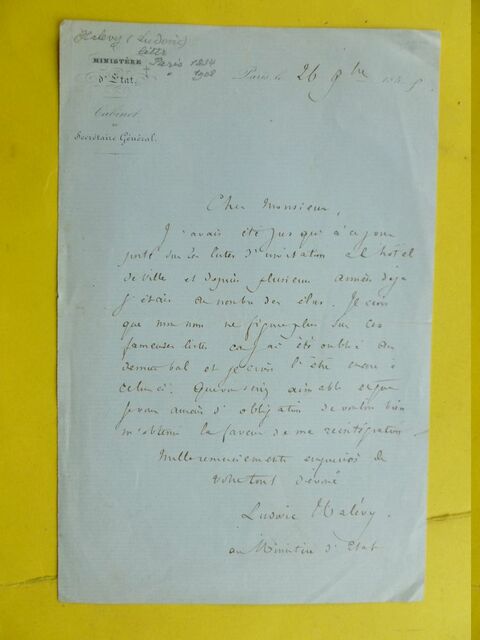 Halévy (Ludovic)
MINISTÈRE Paris 1834
d'État. " 1908
Cabinet
Secrétaire Général.
Paris, le 26 9bre
Cher Monsieur,
J'avais été jusqu'à ce jour
porté sur les listes d'invitation à l'hôtel
de Ville et depuis plusieurs années déjà
j'étais au nombre des élus. Je crois
que mon nom ne figure plus sur ces
fameuses listes car j'ai été oublié au
dernier bal et je crois l'être encore à
celui ci. aimable et que
je vous aurais d'obligation de vouloir bien
m'obtenir la faveur de ma réintégration
Mille remerciements empressés de
votre tout dévoué
Ludovic Halévy.
au Ministère d'Etat